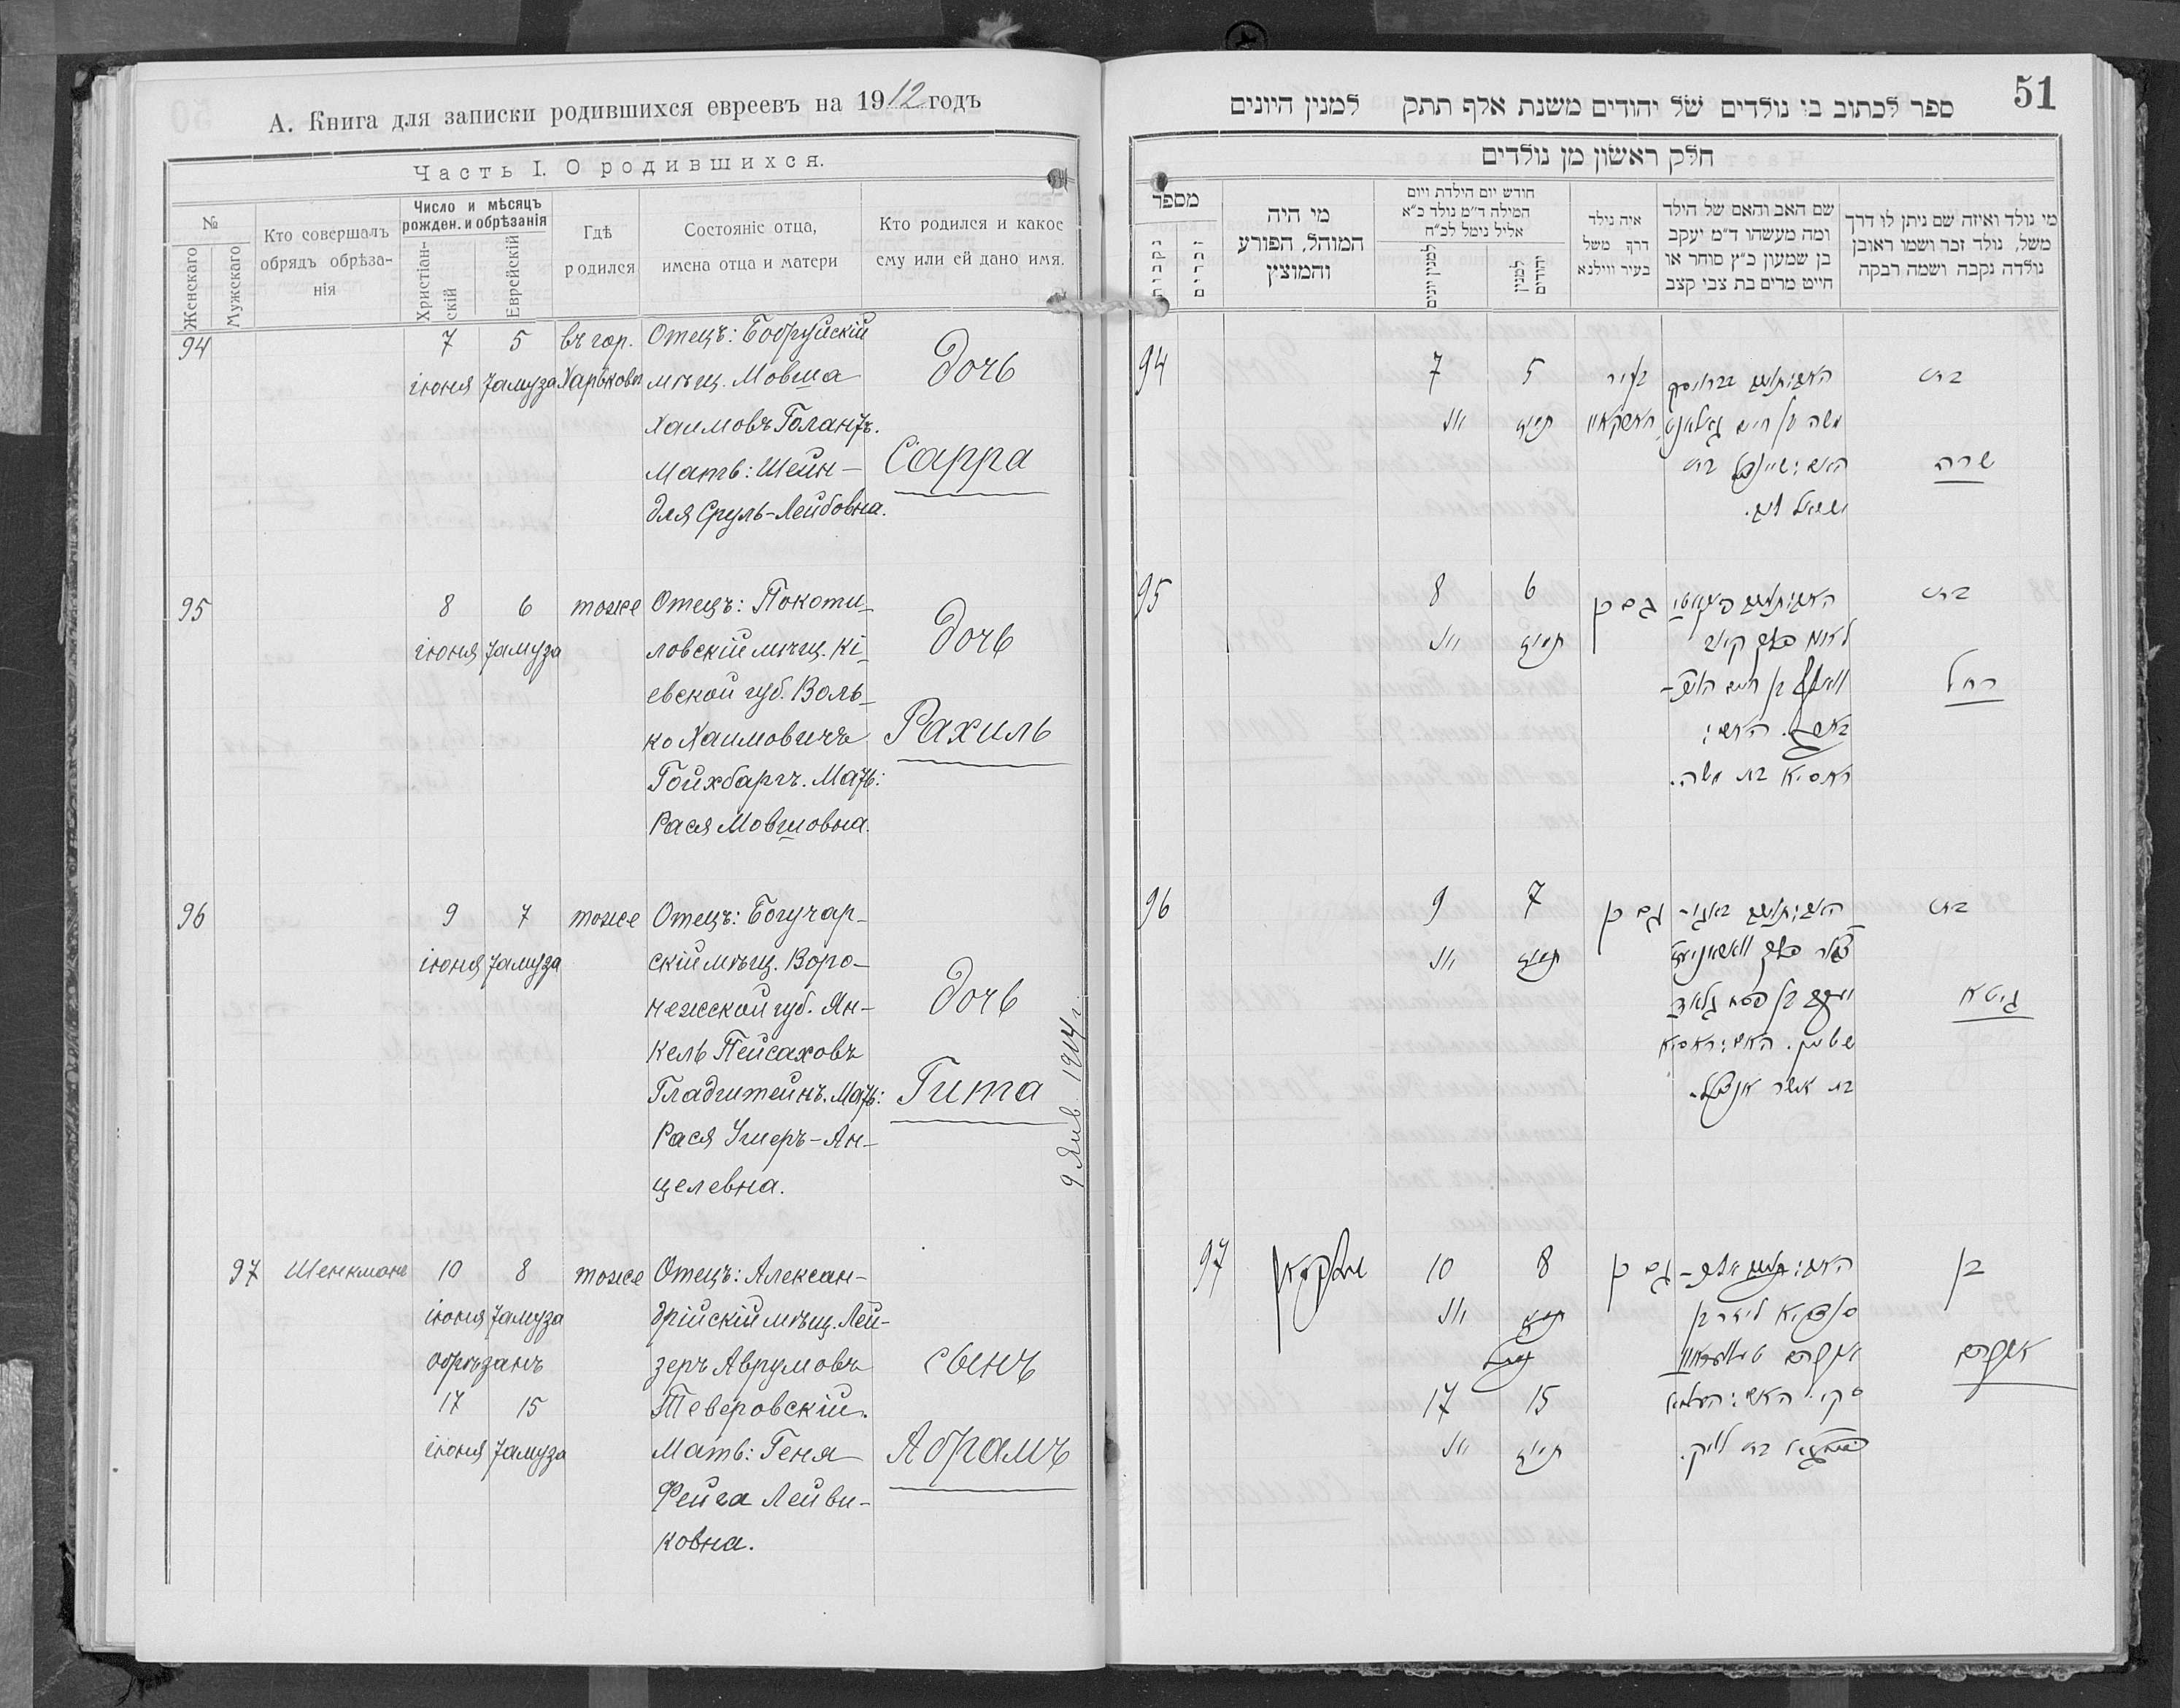 А. Книга для записки родившихся евреевъ на 1912 годъ
Часть I. О родившихся.
№
Женскаго
Мужскаго
Кто совершалъ
обрядъ обрѣза-
нія
Число и мѣсяцъ
рожден. и обрѣзанія
Христіан-
скій
Еврейскій
Гдѣ
родился
Состояніе отца,
имена отца и матери
Кто родился и какое
ему или ей дано имя.
94
7
іюня
5
Тамуза
въ гор.
Харьковѣ
Отецъ: Бобруйскій
мѣщ. Мовша
Хаимовъ Голантъ.
Мать: Шейн-
для Сруль-Лейбовна.
Дочь
Сарра
95
8
іюня
6
Тамуза
тоже
Отецъ: Покоти-
ловскій мѣщ. Кі-
евской губ. Воль-
ко Хаимовичъ
Гойхбаргъ. Мать:
Рася Мовшовна.
Дочь
Рахиль
96
9
іюня
7
Тамуза
тоже
Отецъ: Богучар-
скій мѣщ. Воро-
нежской губ. Ян-
кель Пейсаховъ
Гладштейнъ. Мать:
Рася Ушеръ-Ан-
целевна.
Дочь
Гита
9 Янв. 1914 г.
97
Шенкманъ
10
іюня
8
Тамуза
обрѣзанъ
17
іюня
15
Тамуза
тоже
Отецъ: Алексан-
дрійскій мѣщ. Лей-
зеръ Аврумовъ
Теверовскій.
Мать: Геня
Фейга Лейви-
ковна.
сынъ
Абрамъ
51
ספר לכתוב בו נולדים של יהודים משנת אלף תתק למנין היונים
חלק ראשון מן נולדים
מספר
נקבות
זכרים
מי היה
המוהל, הפורע
והמוצץ
חודש יום הילדת ויום
המילה ד״מ נולד כ״א
אליל נימל לכ״ח
למנין יונים
למנין
יהודים
איה נולד
דרך משל
בעיר ווילנא
שם האב והאם של הילד
ומה מעשהו ד״מ יעקב
בן שמעון כ״ץ סוחר או
חייט מרים בת צבי קצב
מי נולד ואיזה שם ניתן לו דרך
משל, נולד זכר ושמו ראובן
נולדה נקבה ושמה רבקה
94
7
5
תמוז
בעיר
משה בן חיים
בת
שרה
95
8
6
תמוז
גם כן
בת משה.
בת
רחל
96
9
7
תמוז
גם כן
בת אשר אנצל.
בת
גיטא
97
10
8
תמוז
17
15
תמוז
גם כן
בן
אברהם